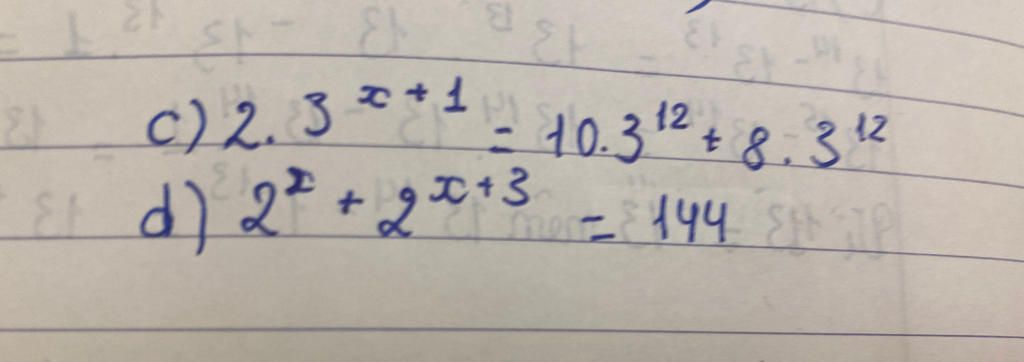 c) 2. 3^{x+1} = 10. 3^{12} + 8. 3^{12}
d) 2^x + 2^{x+3} = 144